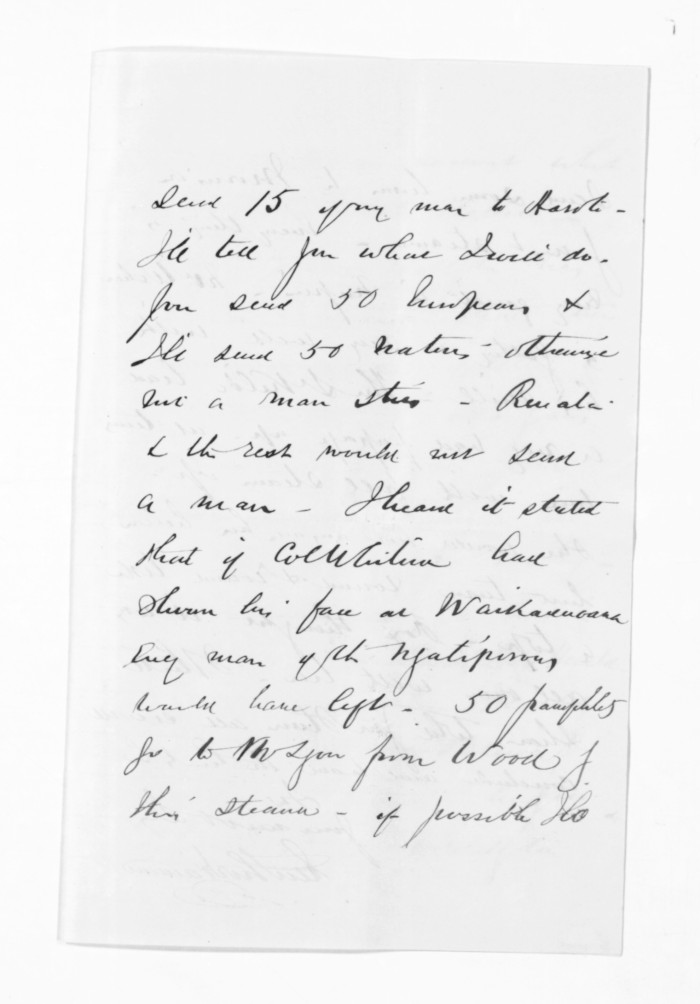 send 15 of my men to Havoti -
I'll tell you what I will do.
You send 50 Europeans &
I'll send 50 natives otherwise
not a man stirs - Renata
& the rest would not send
a man - I heard it stated
that if Col Whitmore had
shewn his face at Waikaremoana
every man of the Ngatiporous
would have left - 50 pamphlets
go to McLyon from Wood by
this steamer - if possible I'll